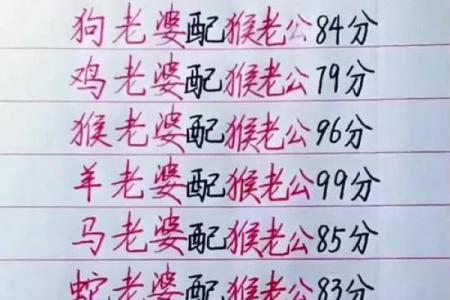 狗老婆配猴老公84分
鸡老婆配猴老公79分
猴老婆配猴老公96分
羊老婆配猴老公99分
马老婆配猴老公85分
蛇老婆配猴老公83分